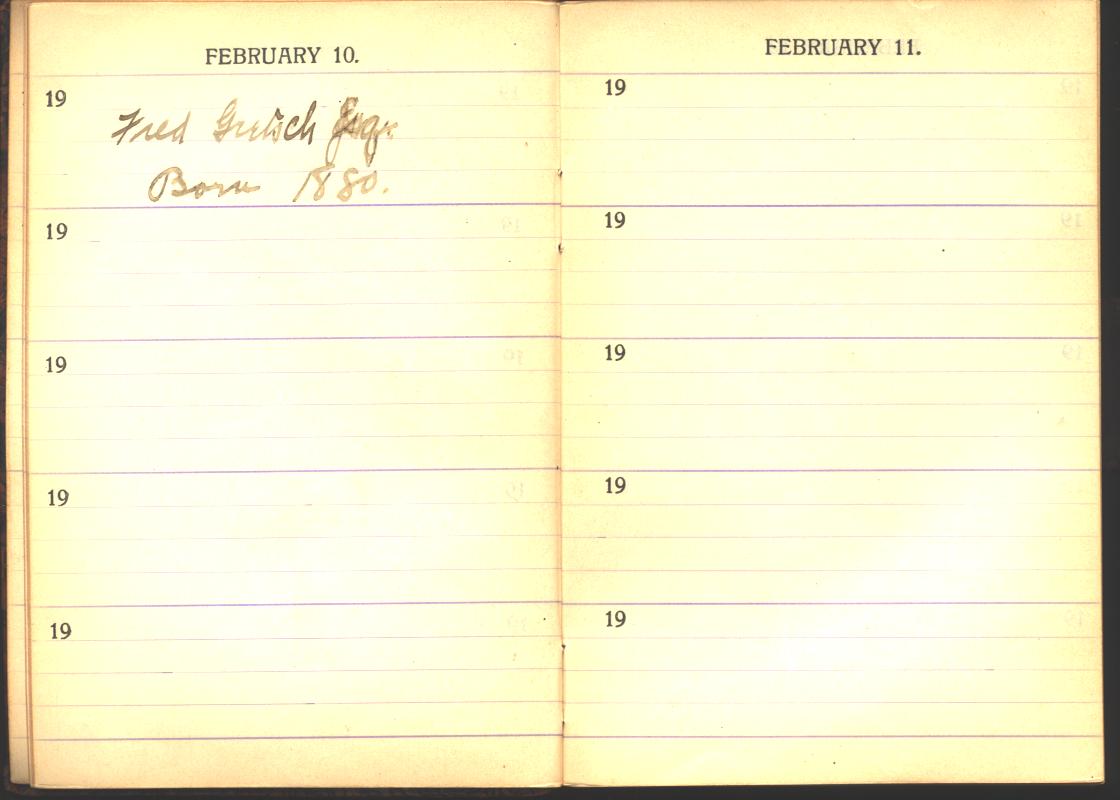 FEBRUARY 10.
19
Fred Gretsch Esqr.
Born 1880.
19
19
19
19
FEBRUARY 11.
19
19
19
19
19